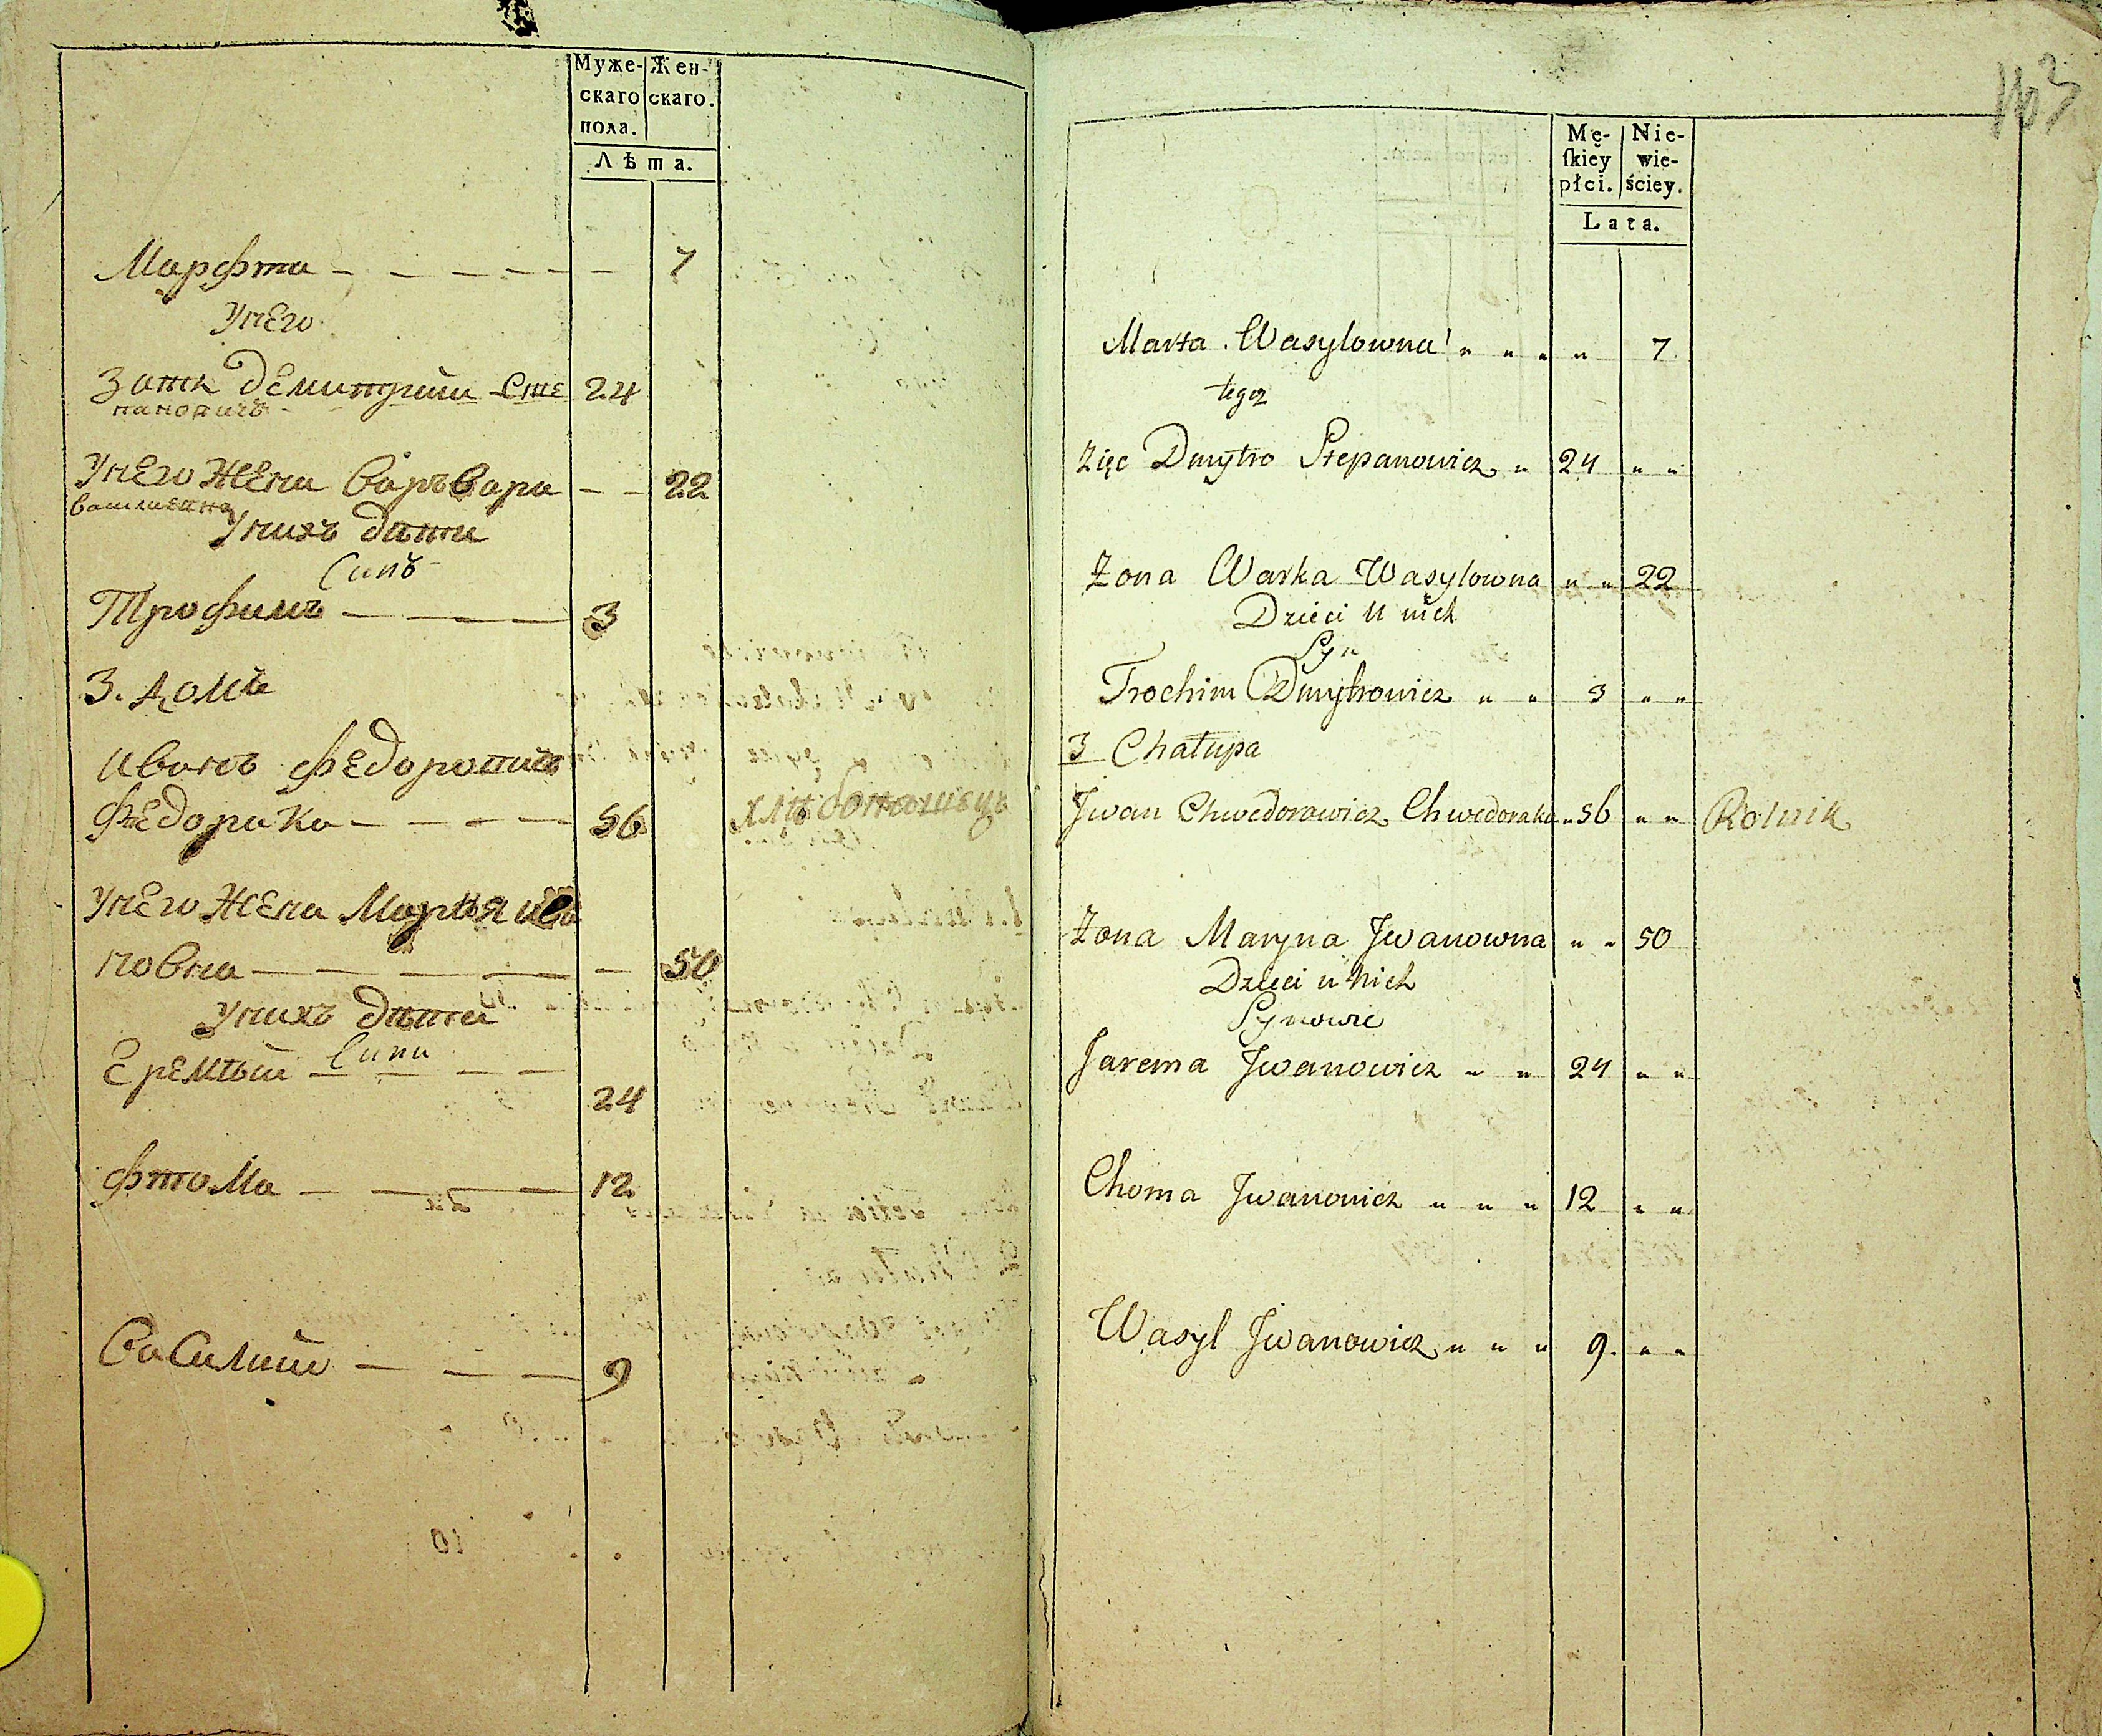 Муже- Жен-
скаго скаго.
пола.
Лѣта.
Марфта 7
Унего
Зать демитрии Сте 24
пановичъ
Унего Жена Варъвара 22
василиевна
Унихъ дѣти
Синъ
Трофимъ 3
3. домъ
Иванъ Федоровичъ
Федорака 56 хлѣбопашецъ
Унего Жена Мария Ива
новна 50
Унихъ дѣти
Сини
Еремѣй
24
Фтома 12
Василии 9
163
Mę- Nie-
ſkiey wie-
płci. ściey.
Lata.
Marta Wasylowna 7
tegoz
Zięc Dmytro Stepanowicz 24
Zona Warka Wasylowna 22
Dzieci u nich
Syn
Trochim Dmytrowicz 3
3 Chałupa
Jwan Chwedorowicz Chwedoraka 56 Rolnik
Zona Maryna Jwanowna 50
Dzieci u nich
Synowie
Jarema Jwanowicz 24
Choma Jwanowicz 12
Wasyl Jwanowicz 9.